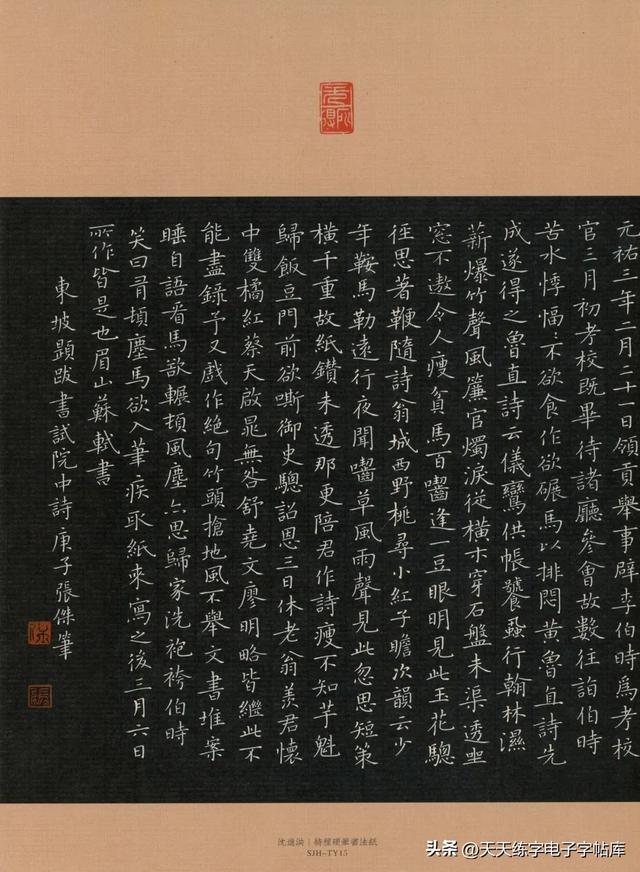 元祐三年二月二十一日領貢舉事辟李伯時爲考校
官三月初考校既畢待諸廳參會故數往詣伯時
苦水悸愊〻不欲食作欲碾馬以排悶黃魯直詩先
成遂得之魯直詩云儀鸞供帳饕蝨行翰林濕
薪爆竹聲風簾官燭淚從橫木穿石盤未渠透坐
窓不遨令人瘦貧馬百囓逢一豆眼明見此玉花驄
徑思著鞭隨詩翁城西野桃尋小紅子瞻次韻云少
年鞍馬勒遠行夜聞囓草風雨聲見此忽思短策
橫千重故紙鑽未透那更陪君作詩瘦不知芋魁
歸飯豆門前欲嘶御史驄詔恩三日休老翁羨君懷
中雙橘紅蔡天啟晁無咎舒堯文廖明略皆繼此不
能盡錄予又戲作絕句竹頭搶地風不舉文書堆案
睡自語看馬欲輾頓風塵亦思歸家洗袍袴伯時
笑曰有頓塵馬欲入筆疾取紙來寫之後三月六日
所作皆是也眉山蘇軾書
東坡題跋書試院中詩庚子張傑筆
張
特種硬筆書法紙
SJH-TY15
头条 @天天练字电子字帖库